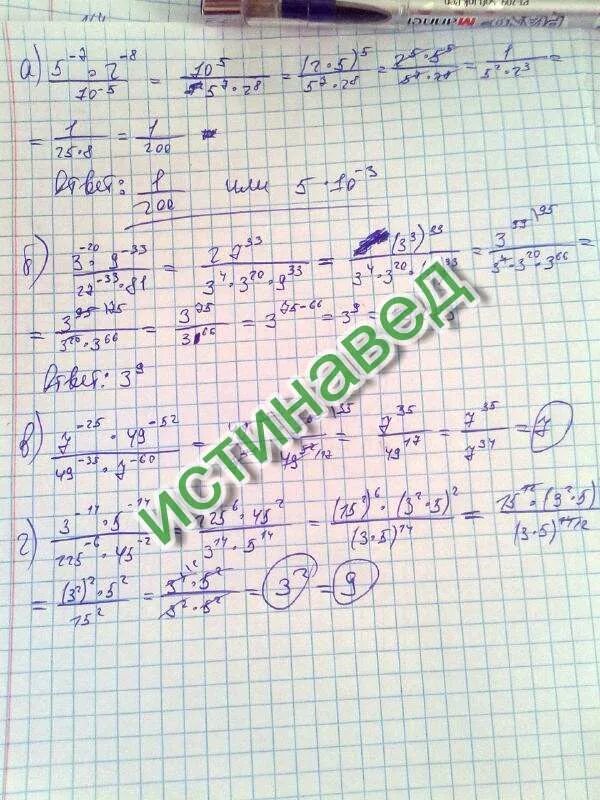 а) (5^-7 · 2^-8)/(10^-5) = 10^5/(5^7 · 2^8) = (2·5)^5/(5^7 · 2^8) = (2^5 · 5^5)/(5^7 · 2^8) = 1/(5^2 · 2^3) =
= 1/(25·8) = 1/200
Ответ: 1/200 или 5 · 10^-3
б) (3^-20 · 9^-33)/(27^-33 · 81) = 27^33/(3^4 · 3^20 · 9^33) = (3^3)^33/(3^4 · 3^20 · = 3^99/(3^4 · 3^20 · 3^66) =
= 3^75/(3^20 · 3^66) = 3^75/3^66 = 3^75-66 = 3^9 =
Ответ: 3^9
в) (7^-25 · 49^-52)/(49^-35 · 7^-60) = = 7^35/49^17 = 7^35/7^34 = 7
г) (3^-14 · 5^-14)/(225^-6 · 45^-2) = (225^6 · 45^2)/(3^14 · 5^14) = ((15^2)^6 · (3^2 · 5)^2)/(3·5)^14 = (15^12 · (3^2 · 5)/(3·5)^14
= ((3^2)^2 · 5^2)/15^2 = (3^4 · 5^2)/(3^2 · 5^2) = 3^2 = 9
истинавед